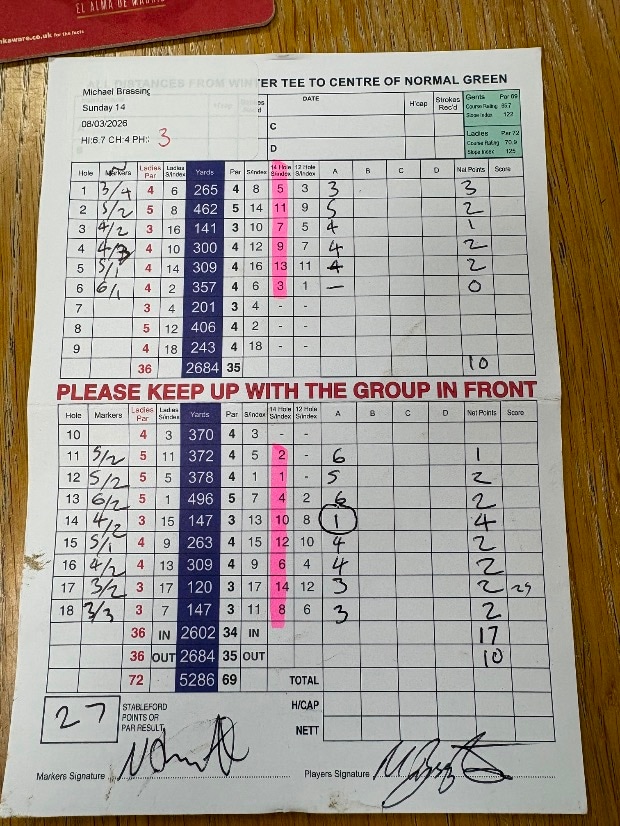 EL ALMA DE MADRID
nkaware.co.uk for the facts
ALL DISTANCES FROM WINTER TEE TO CENTRE OF NORMAL GREEN
Michael Brassing
Sunday 14
08/03/2026
HI:6.7 CH:4 PH: 3
DATE H'cap Strokes Rec'd
C
D
Gents Par 69
Course Rating 65.7
Slope Index 122
Ladies Par 72
Course Rating 70.9
Slope Index 125
Hole Markers Ladies Par Ladies S/Index Yards Par S/Index 14 Hole S/Index 12 Hole S/Index A B C D Net Points Score
1 3/4 4 6 265 4 8 5 3 3 3
2 5/2 5 8 462 5 14 11 9 5 2
3 4/2 3 16 141 3 10 7 5 4 1
4 4/3 4 10 300 4 12 9 7 4 2
5 5/1 4 14 309 4 16 13 11 4 2
6 6/1 4 2 357 4 6 3 1 — 0
7 3 4 201 3 4 - -
8 5 12 406 4 2 - -
9 4 18 243 4 18 - -
36 2684 35 10
PLEASE KEEP UP WITH THE GROUP IN FRONT
Hole Markers Ladies Par Ladies S/Index Yards Par S/Index 14 Hole S/Index 12 Hole S/Index A B C D Net Points Score
10 4 3 370 4 3 - -
11 5/2 5 11 372 4 5 2 - 6 1
12 5/2 5 5 378 4 1 1 - 5 2
13 6/2 5 1 496 5 7 4 2 6 2
14 4/2 3 15 147 3 13 10 8 1 4
15 5/1 4 9 263 4 15 12 10 4 2
16 4/2 4 13 309 4 9 6 4 4 2
17 3/2 3 17 120 3 17 14 12 3 2 29
18 3/3 3 7 147 3 11 8 6 3 2
36 IN 2602 34 IN 17
36 OUT 2684 35 OUT 10
72 5286 69 TOTAL
27
STABLEFORD POINTS OR PAR RESULT
H/CAP
NETT
Markers Signature
Players Signature